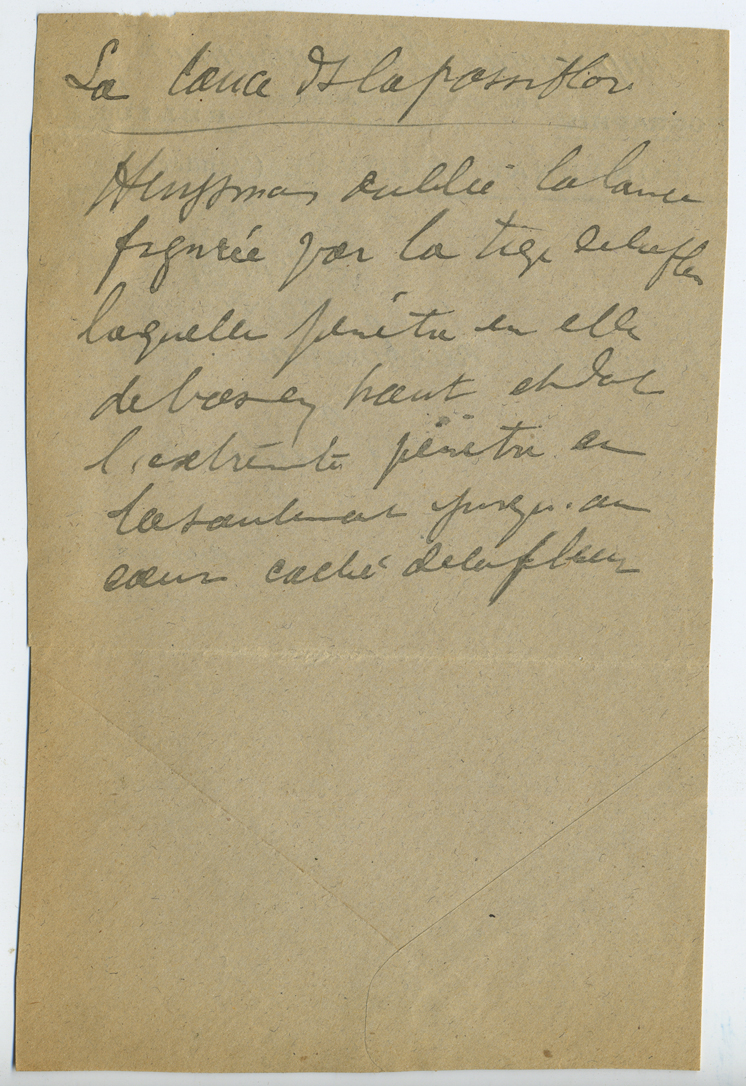 La lance de la passiflore
Huysmans oublie la lance
figurée par la tige de la fleur
laquelle pénètre en elle
de bas en haut et dont
l'extrémité pénètre en
la soulevant jusqu'au
cœur caché de la fleur